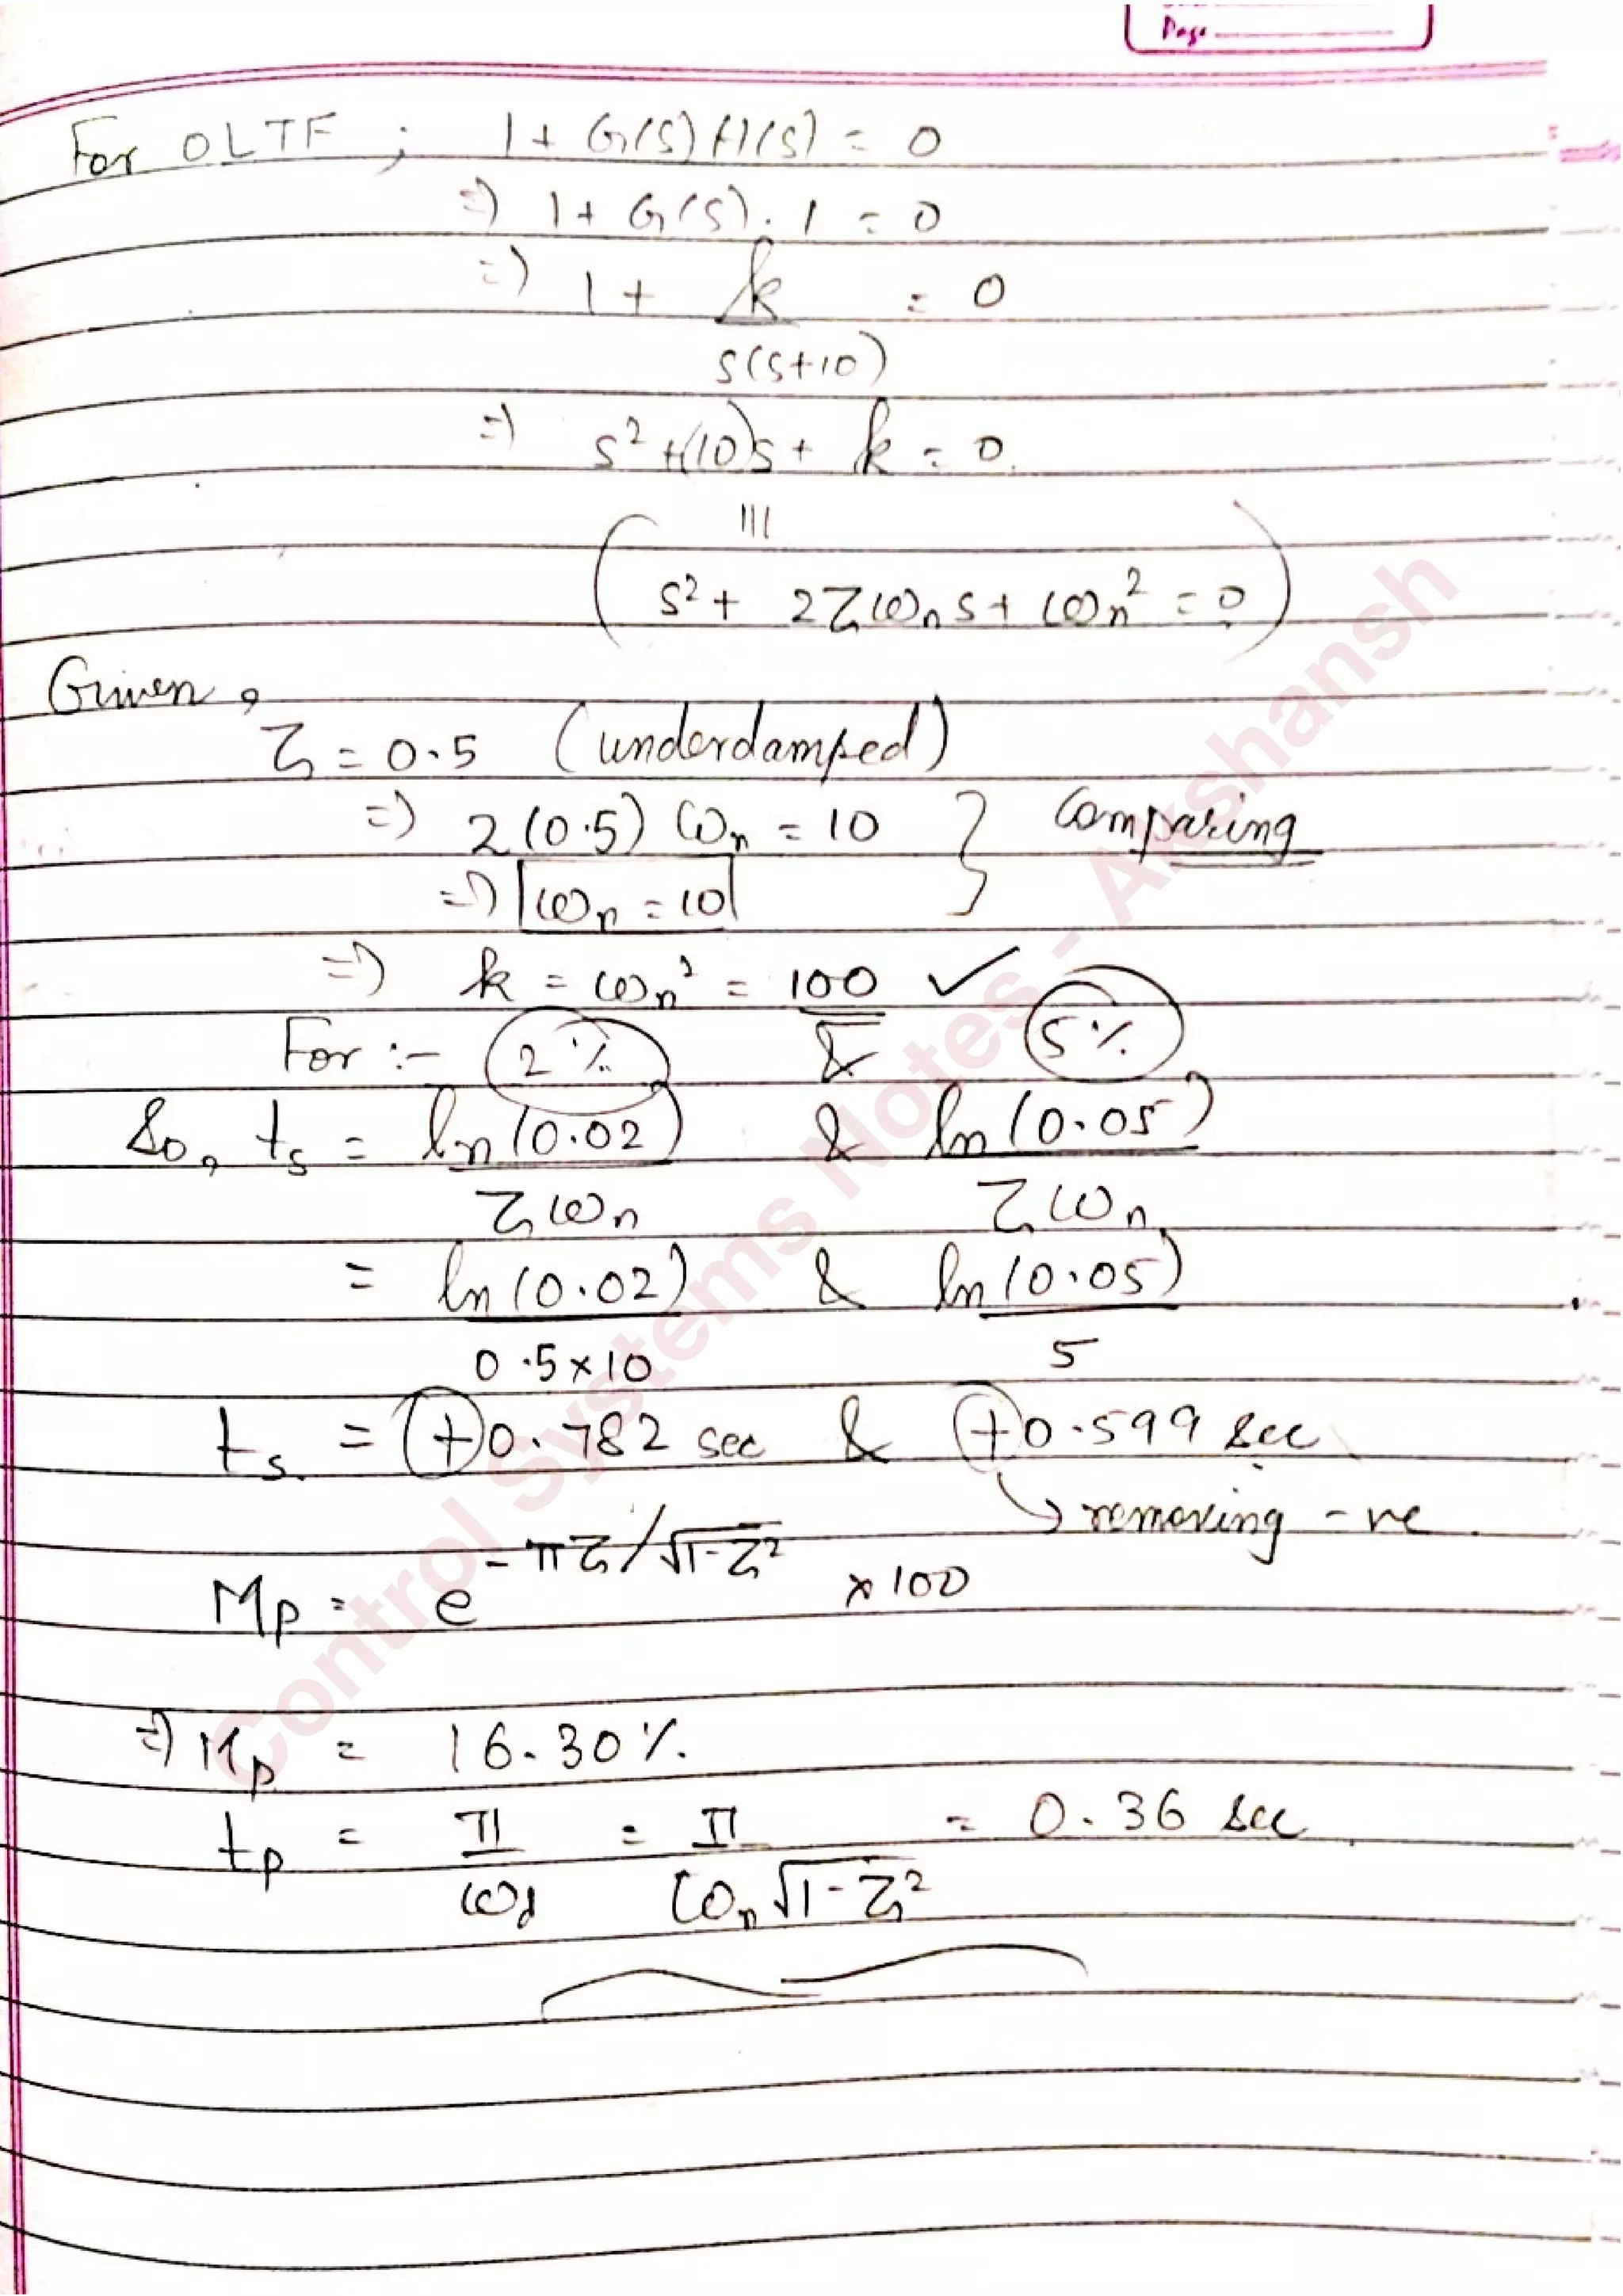 Page
For OLTF ; 1 + G(s) H(s) = 0
=) 1 + G(s) . 1 = 0
=) 1 + k = 0
s(s+10)
=) s² + (10)s + k = 0
|||
( s² + 2ζωₙs + ωₙ² = 0 )
Given,
ζ = 0.5 (underdamped)
=) 2(0.5) ωₙ = 10 } Comparing
=) ωₙ = 10
=) k = ωₙ² = 100 ✓
For :- 2% & 5%
So, tₛ = ln(0.02) & ln(0.05)
ζωₙ ζωₙ
= ln(0.02) & ln(0.05)
0.5×10 5
tₛ = +0.782 sec & +0.599 sec
removing -ve
Mp = e^(-πζ/√1-ζ²) × 100
=) Mp = 16.30%
tp = π = π = 0.36 sec
ωd ωₙ√1-ζ²
Control Systems Notes - Akshansh